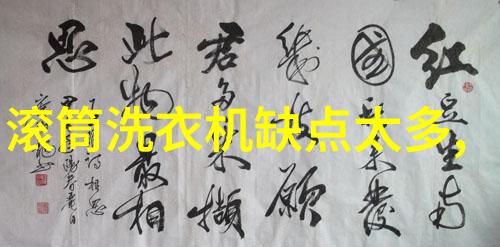 滚筒洗衣机缺点太多,
红豆生南
國春来發
幾枝愿
君多采擷
此物最相
思